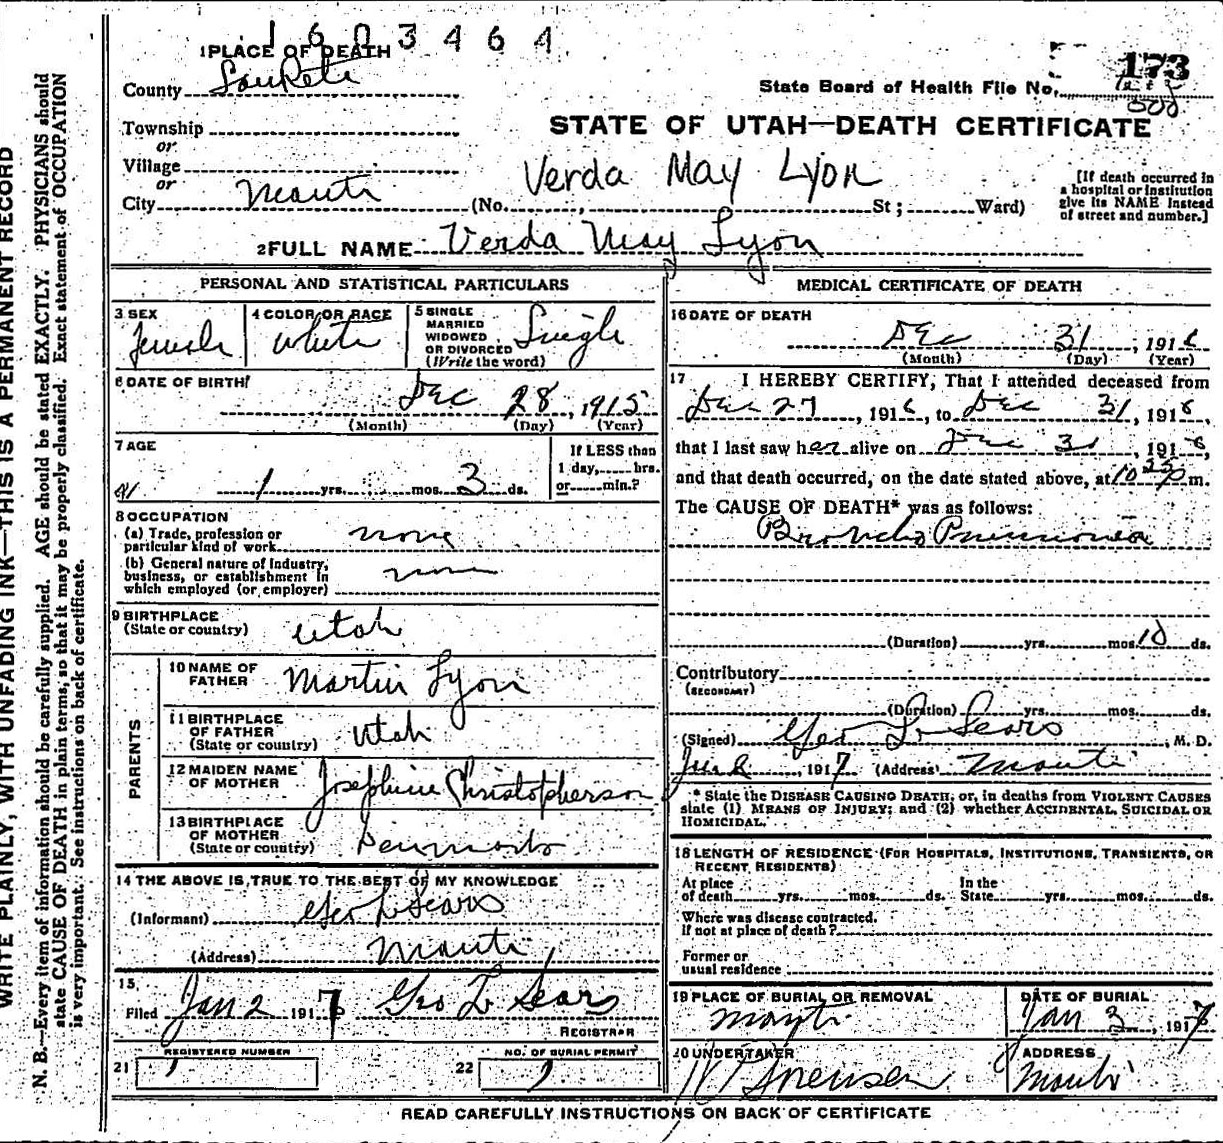 1603464
1 PLACE OF DEATH
County SanPete
State Board of Health File No. 173
Township
or
STATE OF UTAH—DEATH CERTIFICATE
Village
or
Verda May Lyon
City Manti (No. , St; Ward)
[If death occurred in
a hospital or institution
give its NAME instead
of street and number.]
2 FULL NAME Verda May Lyon
PERSONAL AND STATISTICAL PARTICULARS
3 SEX Female
4 COLOR OR RACE White
5 SINGLE
MARRIED
WIDOWED
OR DIVORCED
(Write the word) Single
6 DATE OF BIRTH
Dec 28, 1915
(Month) (Day) (Year)
7 AGE
1 yrs. mos. 3 ds.
If LESS than
1 day, hrs.
or min.?
8 OCCUPATION
(a) Trade, profession or
particular kind of work none
(b) General nature of Industry,
business, or establishment in
which employed (or employer) none
9 BIRTHPLACE
(State or country) Utah
PARENTS
10 NAME OF
FATHER Martin Lyon
11 BIRTHPLACE
OF FATHER
(State or country) Utah
12 MAIDEN NAME
OF MOTHER Josephine Christopherson
13 BIRTHPLACE
OF MOTHER
(State or country) Denmark
14 THE ABOVE IS TRUE TO THE BEST OF MY KNOWLEDGE
(Informant) Geo L Sears
(Address) Manti
15
Filed Jan 2 1917 Geo L Sears
REGISTRAR
21 REGISTERED NUMBER 1
22 NO. OF BURIAL PERMIT 1
MEDICAL CERTIFICATE OF DEATH
16 DATE OF DEATH
Dec 31, 1916
(Month) (Day) (Year)
17 I HEREBY CERTIFY, That I attended deceased from
Dec 27, 1916, to Dec 31, 1916
that I last saw her alive on Dec 31, 1916,
and that death occurred, on the date stated above, at 10 m.
The CAUSE OF DEATH* was as follows:
Broncho Pneumonia
(Duration) yrs. mos. 10 ds.
Contributory
(SECONDARY)
(Duration) yrs. mos. ds.
(Signed) Geo L Sears, M. D.
Jan 2, 1917 (Address) Manti
* State the DISEASE CAUSING DEATH; or, in deaths from VIOLENT CAUSES
state (1) MEANS OF INJURY; and (2) whether ACCIDENTAL, SUICIDAL OR
HOMICIDAL.
18 LENGTH OF RESIDENCE (FOR HOSPITALS, INSTITUTIONS, TRANSIENTS, OR
RECENT RESIDENTS)
At place
of death yrs. mos. ds.
In the
State yrs. mos. ds.
Where was disease contracted,
if not at place of death?
Former or
usual residence
19 PLACE OF BURIAL OR REMOVAL
Manti
DATE OF BURIAL
Jan 3, 1917
20 UNDERTAKER
Sorensen
ADDRESS
Manti
READ CAREFULLY INSTRUCTIONS ON BACK OF CERTIFICATE
WRITE PLAINLY, WITH UNFADING INK—THIS IS A PERMANENT RECORD
N. B.—Every item of information should be carefully supplied. AGE should be stated EXACTLY. PHYSICIANS should
state CAUSE OF DEATH in plain terms, so that it may be properly classified. Exact statement of OCCUPATION
is very important. See instructions on back of certificate.